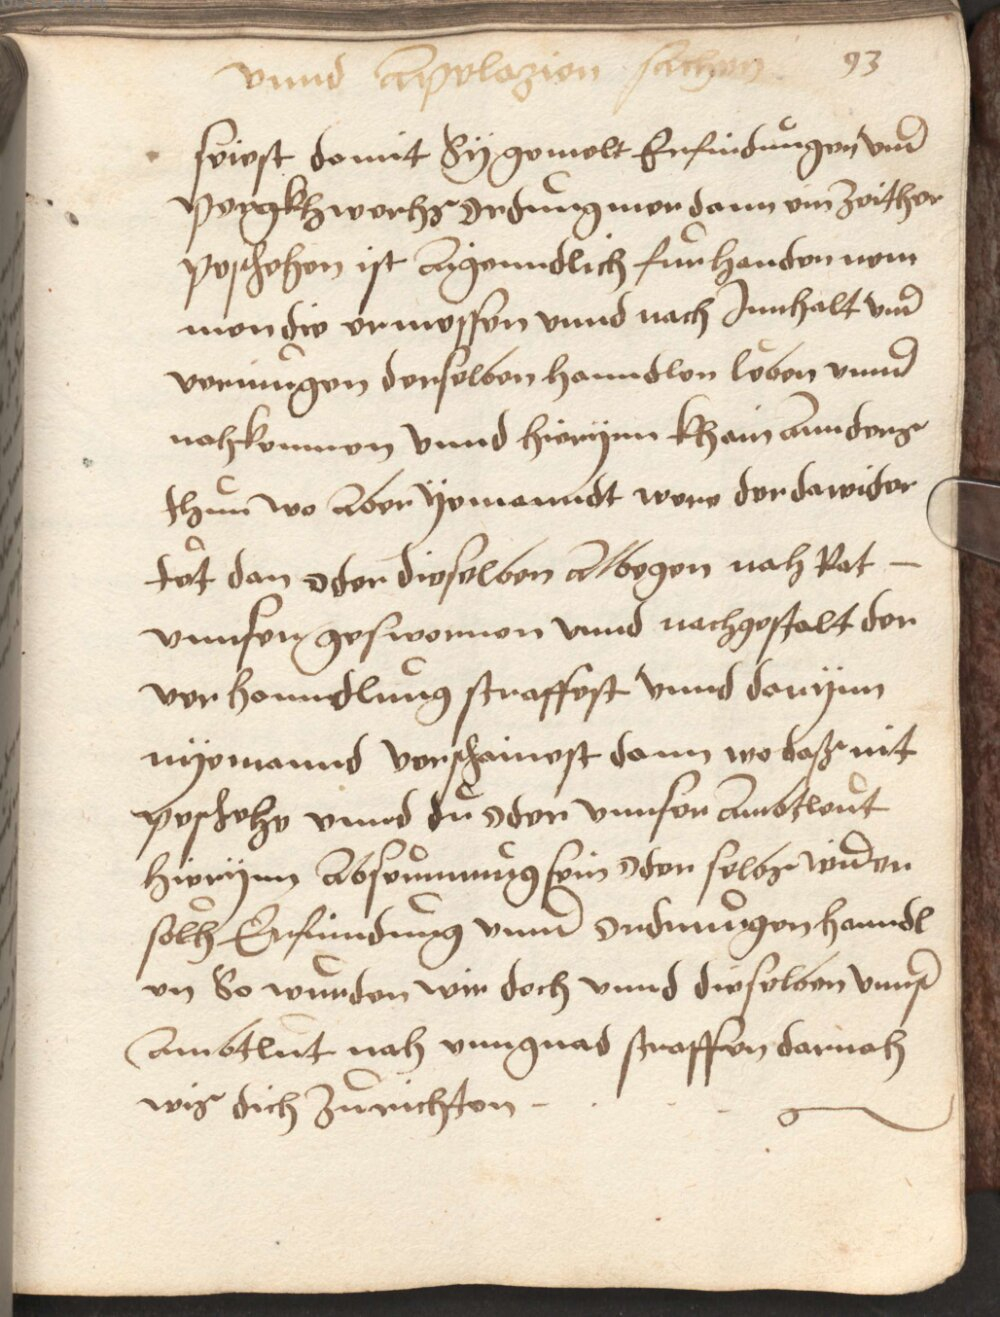 vnnd Apelazion sachen 93
seiest damit Sÿ gemelt Erfindungen vnd
Pergkhwerchs Ordnung mer dann ein Zeither
peschehen ist Aigenndlich fur handen nem
men die ermessen vnnd nach Innhalt vnd
vermugen derselben hanndlen leben vnnd
nahkomen vnnd hierÿnn khain annders
thun wo aber Yemanndt were der dawider
tet dan oder dieselben Albegen nah Rat –
vnnser gesworner vnnd nachgestalt der
verhanndlung straffest vnnd darÿnn
nÿemannd verschainest dann wo das nit
peschehe vnnd du oder vnnser Ambtleut
hierÿnn Absewmung sein oder selbs wider
solh Erfindung vnnd Ordnungen hanndl
en So wurden wir dich vnnd dieselben vnnser
Ambtlut nah vnngnad straffen darnah
wis dich Zurichten –